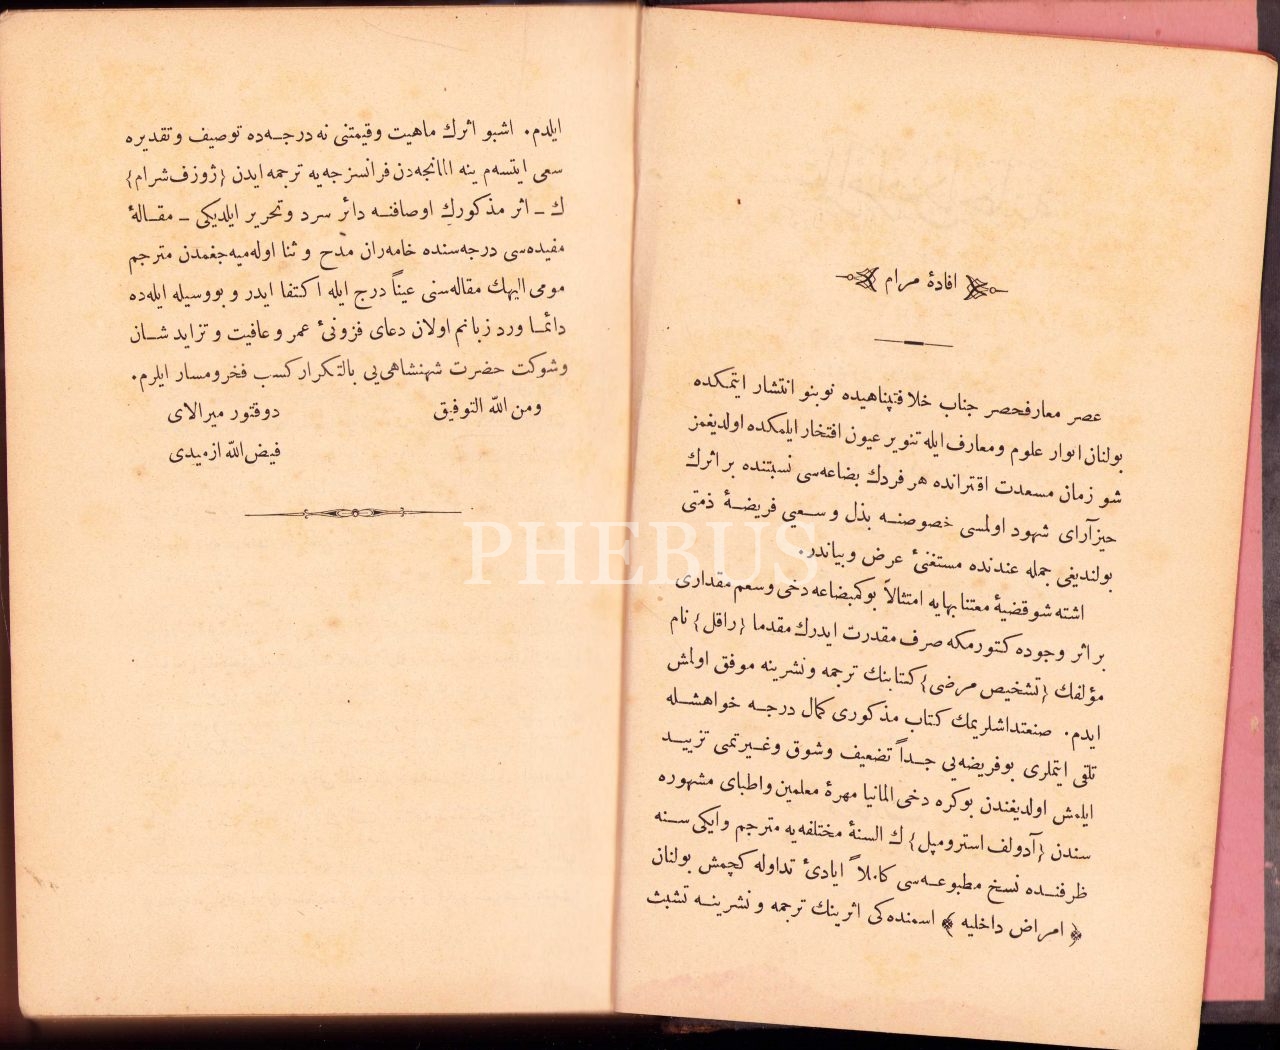 افادۀ مرام
عصر معارفحصر جناب خلافتپناهیده نوبنو انتشار ایتمکده
بولنان انوار علوم ومعارف ایله تنویر عیون افتخار ایلمکده اولدیغمز
شو زمان مسعدت اقترانده هر فردك بضاعه‌سی نسبتنده بر اثرك
حیزآرای شهود اولمسی خصوصنه بذل وسعیی فریضۀ ذمتی
بولندیغی جمله عندنده مستغنیٔ عرض وبیاندر.
اشته شو قضیۀ معتنابهایه امتثالاً بوکمبضاعه دخی وسعم مقداری
بر اثر وجوده کتورمکه صرف مقدرت ایدرك مقدما {راقل} نام
مؤلفك {تشخیص مرضی} کتابنك ترجمه ونشرینه موفق اولمش
ایدم. صنعتداشلریمك کتاب مذکوری کمال درجه خواهشله
تلقی ایتملری بوفریضه‌یی جداً تضعیف وشوق وغیرتمی تزیید
ایلمش اولدیغندن بوکره دخی المانیا مهرۀ معلمین واطبای مشهوره
سندن {آدولف استرومپل} ك السنۀ مختلفه‌یه مترجم وایکی سنه
ظرفنده نسخ مطبوعه‌سی کاملاً ایادیٔ تداوله کچمش بولنان
﴿امراض داخلیه﴾ اسمنده‌کی اثرینك ترجمه ونشرینه تشبث
ایلدم. اشبو اثرك ماهیت وقیمتنی نه درجه‌ده توصیف وتقدیره
سعی ایتسه‌م ینه المانجه‌دن فرانسزجه‌یه ترجمه ایدن {ژوزف شرام}
ك ـ اثر مذکورك اوصافنه دائر سرد وتحریر ایلدیکی ـ مقالۀ
مفیده‌سی درجه‌سنده خامه‌ران مدح و ثنا اوله‌میه‌جغمدن مترجم
مومی الیهك مقاله‌سنی عیناً درج ایله اکتفا ایدر و بووسیله ایله‌ده
دائما ورد زبانم اولان دعای فزونیٔ عمر و عافیت و تزاید شان
وشوکت حضرت شهنشاهی‌یی بالتکرار کسب فخرومسار ایلرم.
ومن الله التوفیق
دوقتور میرالای
فیض الله ازمیدی
PHEBUS